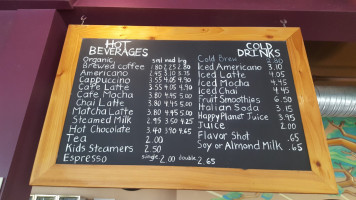 HOT
BEVERAGES
Organic sml med lrg
Brewed Coffee 1.80 2.25 2.80
Americano 2.45 3.10 3.75
Cappuccino 3.55 4.05 4.90
Cafe Latte 3.55 4.05 4.90
Cafe Mocha 3.80 4.45 5.00
Chai Latte 3.80 4.45 5.00
Matcha Latte 3.80 4.45 5.00
Steamed Milk 2.95 3.50 4.25
Hot Chocolate 3.40 3.90 4.65
Tea 2.00
Kids Steamers 2.50
Espresso single 2.00 double 2.65
COLD
DRINKS
Cold Brew 2.80
Iced Americano 3.10
Iced Latte 4.05
Iced Mocha 4.45
Iced Chai 4.45
Fruit Smoothies 6.50
Italian Soda 3.15
Happy Planet Juice 3.95
Juice 2.00
Flavor Shot .65
Soy or Almond Milk .65